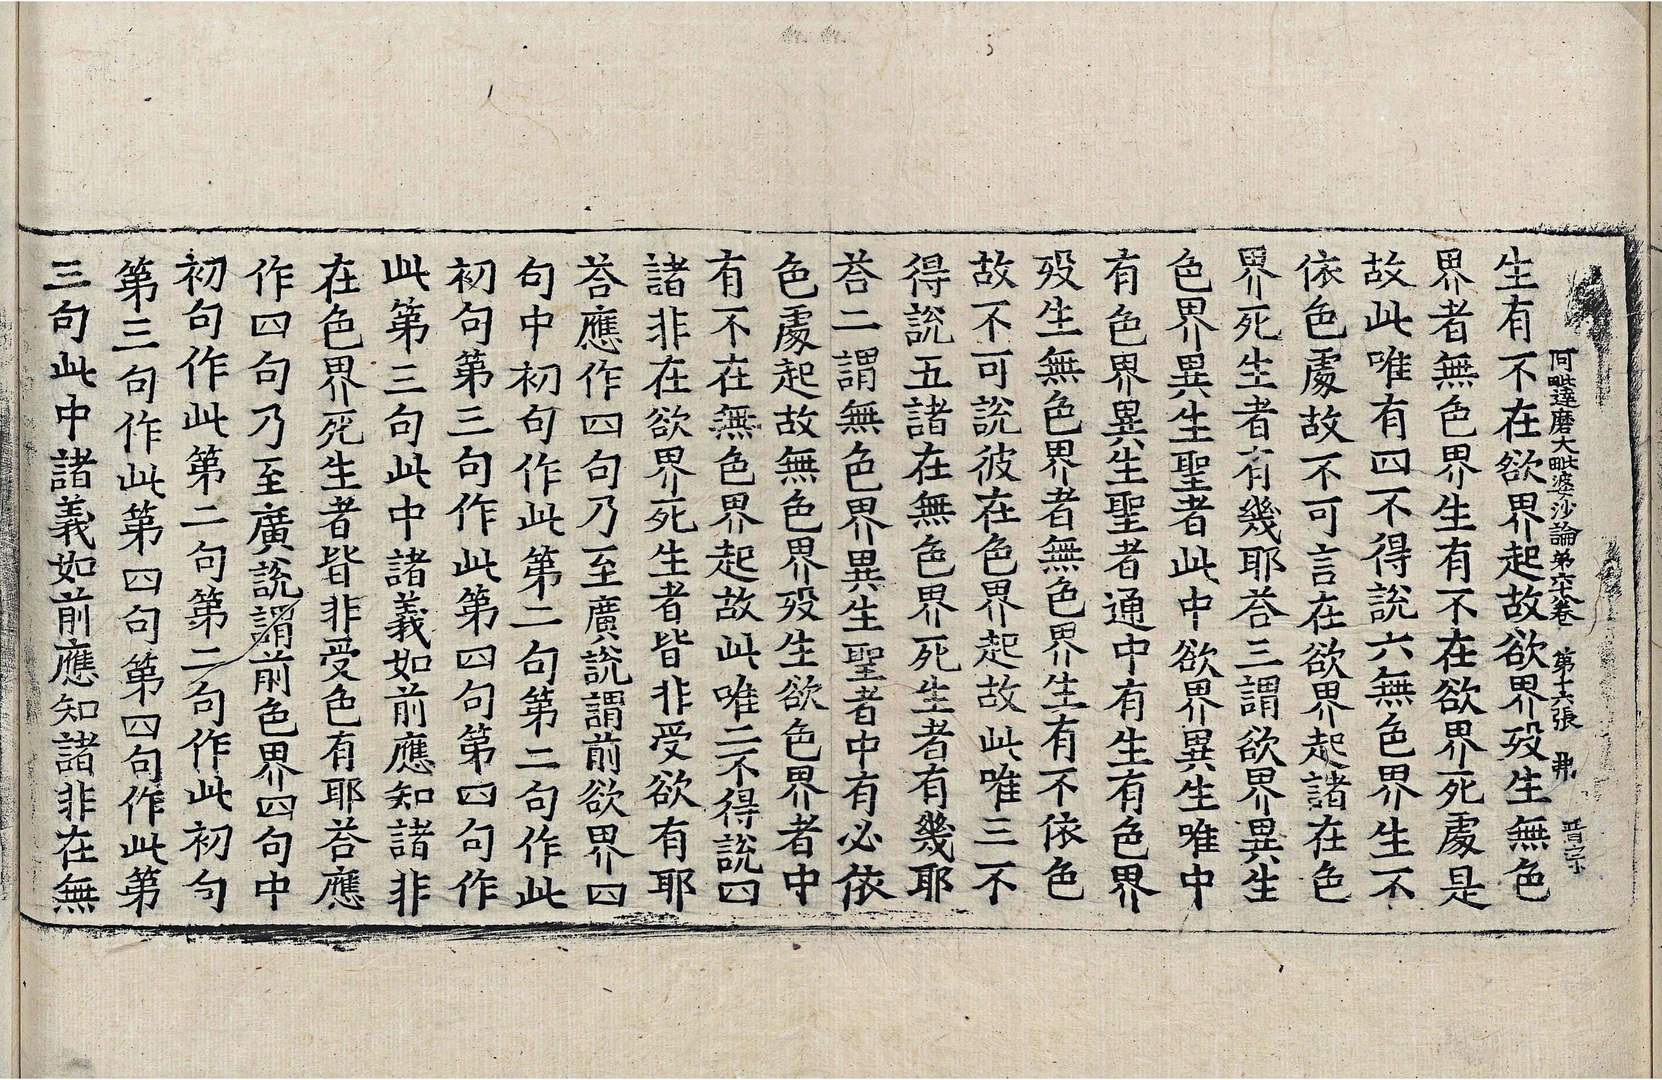 阿毗達磨大毗婆沙論第六十卷 第十六張 弗
生有不在欲界起故欲界歿生無色
界者無色界生有不在欲界死處是
故此唯有四不得說六無色界生不
依色處故不可言在欲界起諸在色
界死生者有幾耶荅三謂欲界異生
色界異生聖者此中欲界異生唯中
有色界異生聖者通中有生有色界
歿生無色界者無色界生有不依色
故不可說彼在色界起故此唯三不
得說五諸在無色界死生者有幾耶
荅二謂無色界異生聖者中有必依
色處起故無色界歿生欲色界者中
有不在無色界起故此唯二不得說四
諸非在欲界死生者皆非受欲有耶
荅應作四句乃至廣說謂前欲界四
句中初句作此第二句第二句作此
初句第三句作此第四句第四句作
此第三句此中諸義如前應知諸非
在色界死生者皆非受色有耶荅應
作四句乃至廣說謂前色界四句中
初句作此第二句第二句作此初句
第三句作此第四句第四句作此第
三句此中諸義如前應知諸非在無